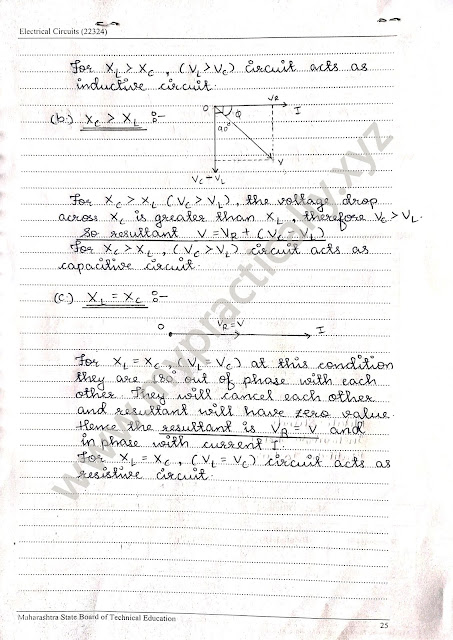 Electrical Circuits (22324)
For XL > XC , (VL > VC) circuit acts as
inductive circuit.
(b.) XC > XL :-
O VR I
Φ
90°
V
VC - VL
For XC > XL (VC > VL), the voltage drop
across XC is greater than XL , therefore VC > VL.
So resultant V = VR + (VC - VL)
For XC > XL , (VC > VL) circuit acts as
capacitive circuit.
(c.) XL = XC :-
O VR = V I
For XL = XC, (VL = VC) at this condition
they are 180° out of phase with each
other. They will cancel each other
and resultant will have zero value.
Hence the resultant is VR = V and
in phase with current I.
For XL = XC , (VL = VC) circuit acts as
resistive circuit.
Maharashtra State Board of Technical Education
25